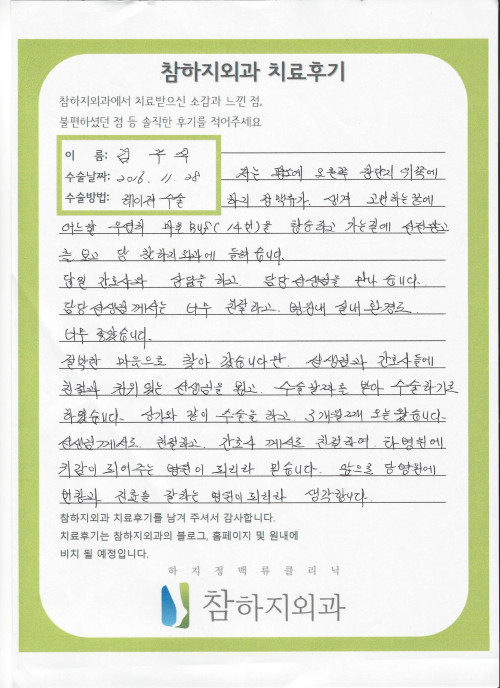 참하지외과 치료후기
참하지외과에서 치료받으신 소감과 느낀 점,
불편하셨던 점 등 솔직한 후기를 적어주세요
이 름: 김
수술날짜: 2016. 11. 28
수술방법: 레이저 수술
저는 평소에 오른쪽 종아리
하지정맥류가 생겨 고민하는중에
어느날 우연히 버스( 14번)을 탑승하고 가는길에 선전광고
를 보고 당 참하지외과에 들려 습니다.
담원 간호사와 상담을 하고. 담당선생님을 만나 습니다.
담당선생님께서는 너무 친절하고. 병원내 실내 환경도
너무 좋았습니다.
절박한 마음으로 찾아 갔습니다만. 선생님과 간호사들에
친절과 선생님을 믿고. 수술날자를 받아 수술하기로
하였습니다. 상기와 같이 수술을 하고 3개월째 오늘 왔습니다.
선생님께서도 친절하고. 간호사 께서도 친절하여. 타병원에
귀감이 되어주는 병원이 되리라 믿습니다. 앞으로 당병원에
번창과 진료를 잘하는 병원이되리라 생각합니다.
참하지외과 치료후기를 남겨 주셔서 감사합니다.
치료후기는 참하지외과의 블로그, 홈페이지 및 원내에
비치 될 예정입니다.
하지정맥류클리닉
참하지외과